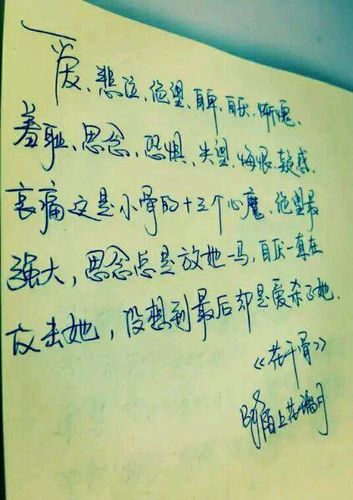 爱、悲泣、绝望、自卑、自厌、惭愧、
羞耻、思念、恐惧、失望、悔恨、疑惑、
哀痛这是小骨的十三个心魔，绝望最
强大，思念总是放她一马，自厌一直在
攻击她，没想到最后却是爱杀了她。
《花千骨》
陌上花满月